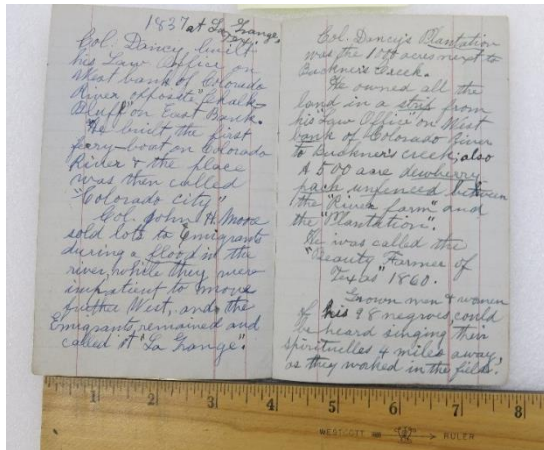 1837 at La Grange,
Tex.
Col. Dancy built
his Law Office on
West bank of Colorado
River opposite "Chalk-
Bluff" on East Bank.
He built the first
ferry-boat on Colorado
Rider & the place
was then called
"Colorado City"
Col. John H. Moore
sold lots to Emigrants
during a flood in the
river, while they were
impatient to move
further West, and the
Emigrants, remained and
called it "La Grange".
Col. Dancy's Plantation
was the acres next to
Buckner's Creek.
He owned all the
land in a strip from
his "Law Office" on West
bank of Colorado River
to Buckner's creek; also
A 500 acre dewberry
pach unfenced between
the "River farm" and
the "Plantation".
He was called the
"Beauty Farmer of
Texas" 1860.
Grown men & women
of his 98 negroes, could
be heard singing their
spirituelles 4 miles away,
as they worked in the fields.
1 2 3 4 5 6 7 8
WESTCOTT RULER